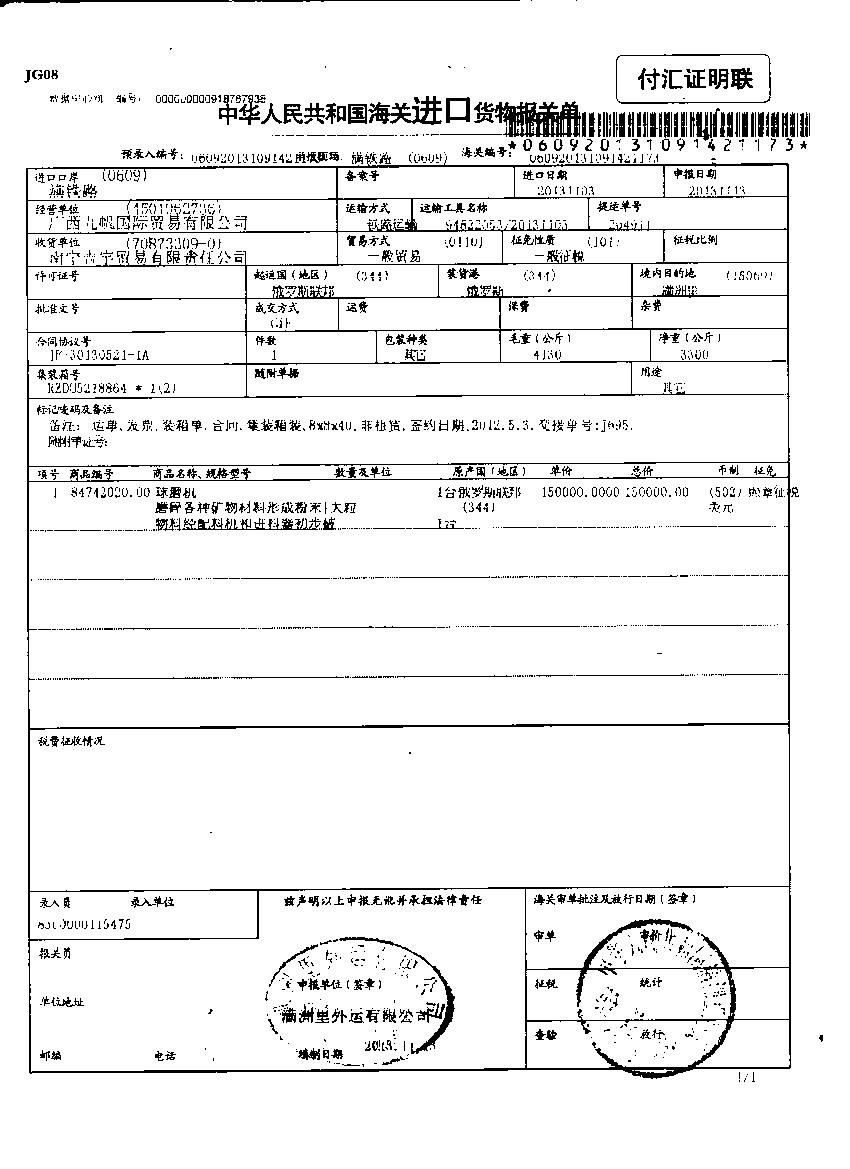 JG08
付汇证明联
编号: 000000000918767936
中华人民共和国海关进口货物报关单
*060920131091421173*
预录入编号: 060920131091421 满铁路 (0609) 海关编号: 060920131091421173
进口口岸 (0609) 备案号 进口日期 申报日期
满铁路 20131103 20131113
经营单位 运输方式 运输工具名称 提运单号
广西九帆国际贸易有限公司 铁路运输 /20131103
收货单位 (70873309-0) 贸易方式 (0110) 征免性质 (101) 征税比例
贸易有限责任公司 一般贸易 一般征税
许可证号 起运国(地区) (344) 装货港 (344) 境内目的地
俄罗斯联邦 俄罗斯 满洲里
批准文号 成交方式 运费 保费 杂费
CIF
合同协议号 件数 包装种类 毛重(公斤) 净重(公斤)
1 其它 4130 3300
集装箱号 随附单据 用途
RZDU5218864 * 1(2) 其它
标记唛码及备注
备注: 运单,发票,装箱单,合同,集装箱装,8x8x40,非租赁,签约日期,2012.5.3,交接单号:J695.
随附单证号:
项号 商品编号 商品名称、规格型号 数量及单位 原产国(地区) 单价 总价 币制 征免
1 84742020.00 球磨机 1台俄罗斯联邦 150000.0000 150000.00 (502) 照章征税
磨碎各种矿物材料形成粉末|大粒 (344) 美元
物料经配料机和进料器初步破 1台
税费征收情况
录入员 录入单位 兹声明以上申报无讹并承担法律责任 海关审单批注及放行日期(签章)
8500000115475
审单 审价
报关员
申报单位(签章) 征税 统计
单位地址 满洲里外运有限公司
查验 放行
邮编 电话 填制日期
1/1